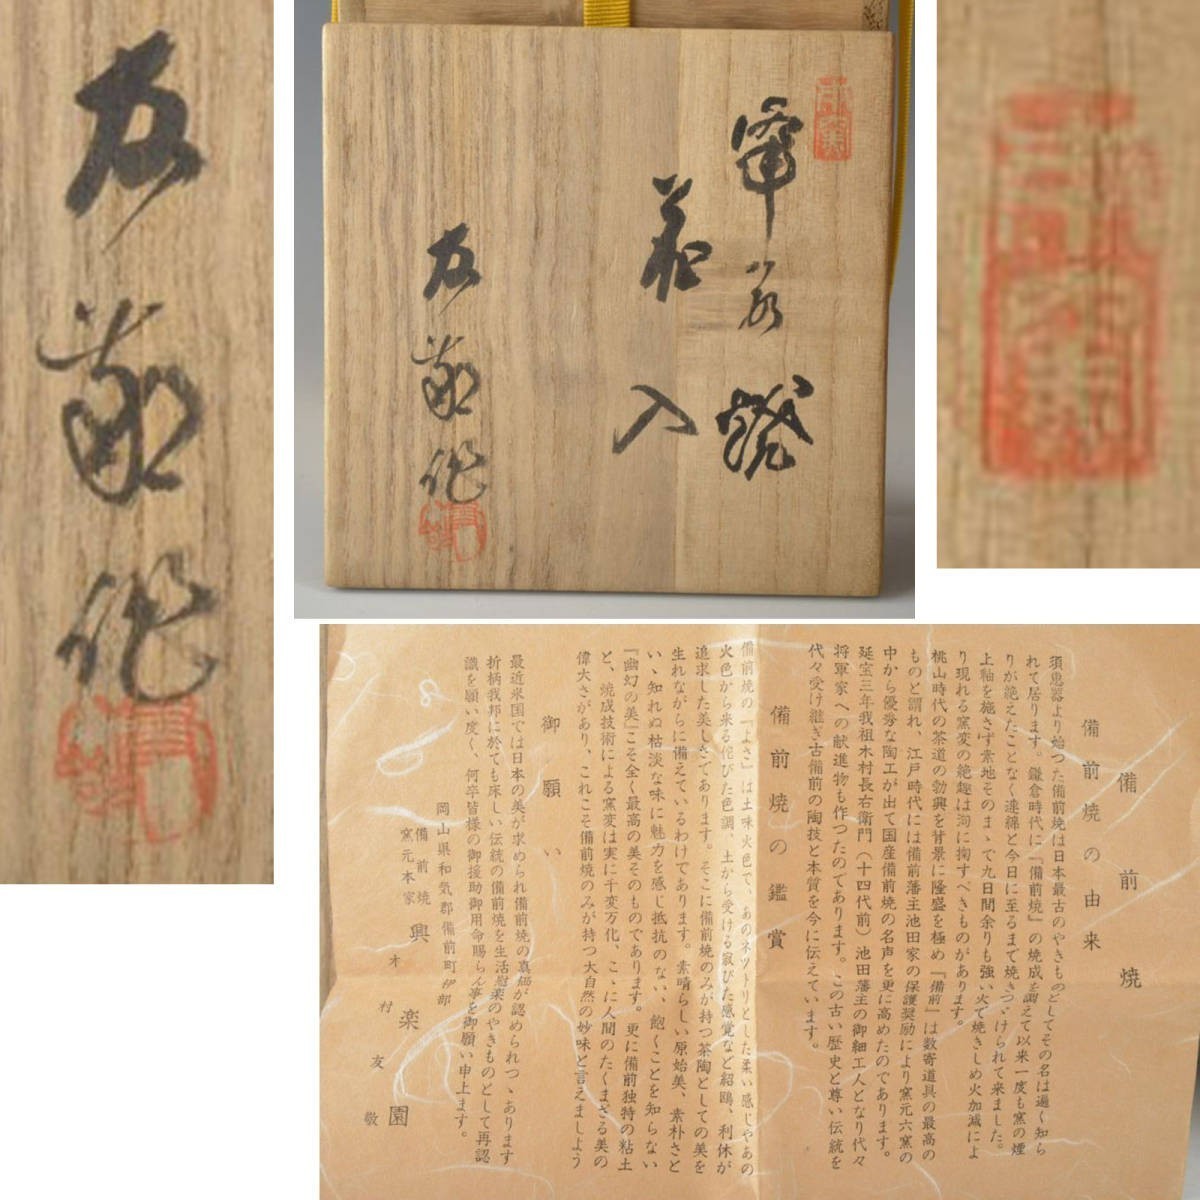 友敬作
備前焼
花入
友敬作
備前焼
備前焼の由来
須恵器より始つた備前焼は日本最古のやきものとしてその名は遍く知ら
れて居ります。鎌倉時代に『備前焼』の焼成を調えて以来一度も窯の煙
りが絶えたことなく連綿と今日に至るまで焼きつゞけられて来ました。
上釉を施さず素地そのまゝで九日間余りも強い火で焼きしめ火加減によ
り現れる窯変の絶趣は洵に掬すべきものがあります。
桃山時代の茶道の勃興を背景に隆盛を極め『備前』は数寄道具の最高の
ものと謂れ、江戸時代には備前藩主池田家の保護奨励により窯元六窯の
中から優秀な陶工が出て国産備前焼の名声を更に高めたのであります。
延宝三年我祖木村長右衛門（十四代前）池田藩主の御細工人となり代々
将軍家への献進物も作つたのであります。この古い歴史と尊い伝統を
代々受け継ぎ古備前の陶技と本質を今に伝えています。
備前焼の鑑賞
備前焼の『よさ』は土味火色で、あのネツトリとした柔い感じやあの
火色から来る侘びた色調、土から受ける寂びた感覚など紹鴎、利休が
追求した美しさであります。そこに備前焼のみが持つ茶陶としての美を
生れながらに備えているわけであります。素晴らしい原始美、素朴さと
いゝ知れぬ枯淡な味に魅力を感じ抵抗のない、飽くことを知らない
『幽幻の美』こそ全く最高の美そのものであります。更に備前独特の粘土
と、焼成技術による窯変は実に千変万化、こゝに人間のたくまざる美の
偉大さがあり、これこそ備前焼のみが持つ大自然の妙味と言えましよう
御願い
最近米国では日本の美が求められ備前焼の真価が認められつゝあります
折柄我邦に於ても床しい伝統の備前焼を生活慰楽のやきものとして再認
識を願い度く、何卒皆様の御援助御用命賜らん事を御願い申上ます。
岡山県和気郡備前町伊部
備前焼
窯元本家 興楽園
木村友敬